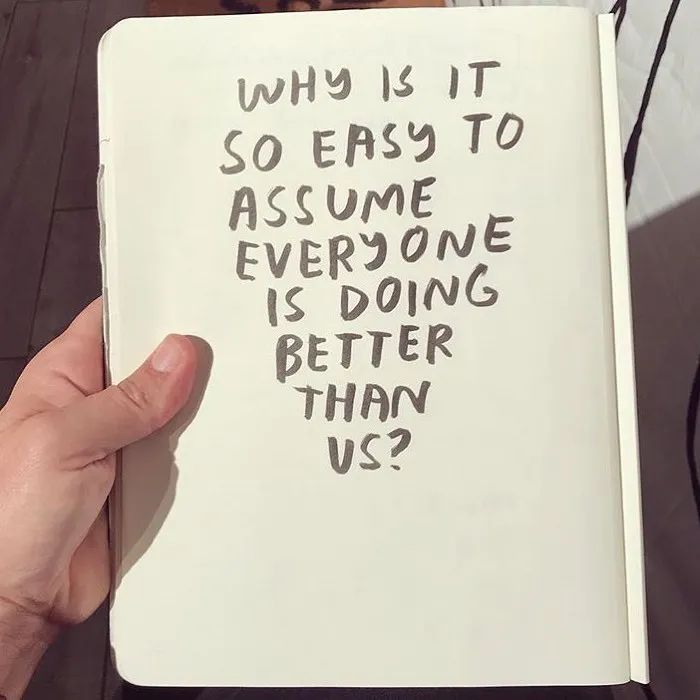 WHY IS IT
SO EASY TO
ASSUME
EVERYONE
IS DOING
BETTER
THAN
US?